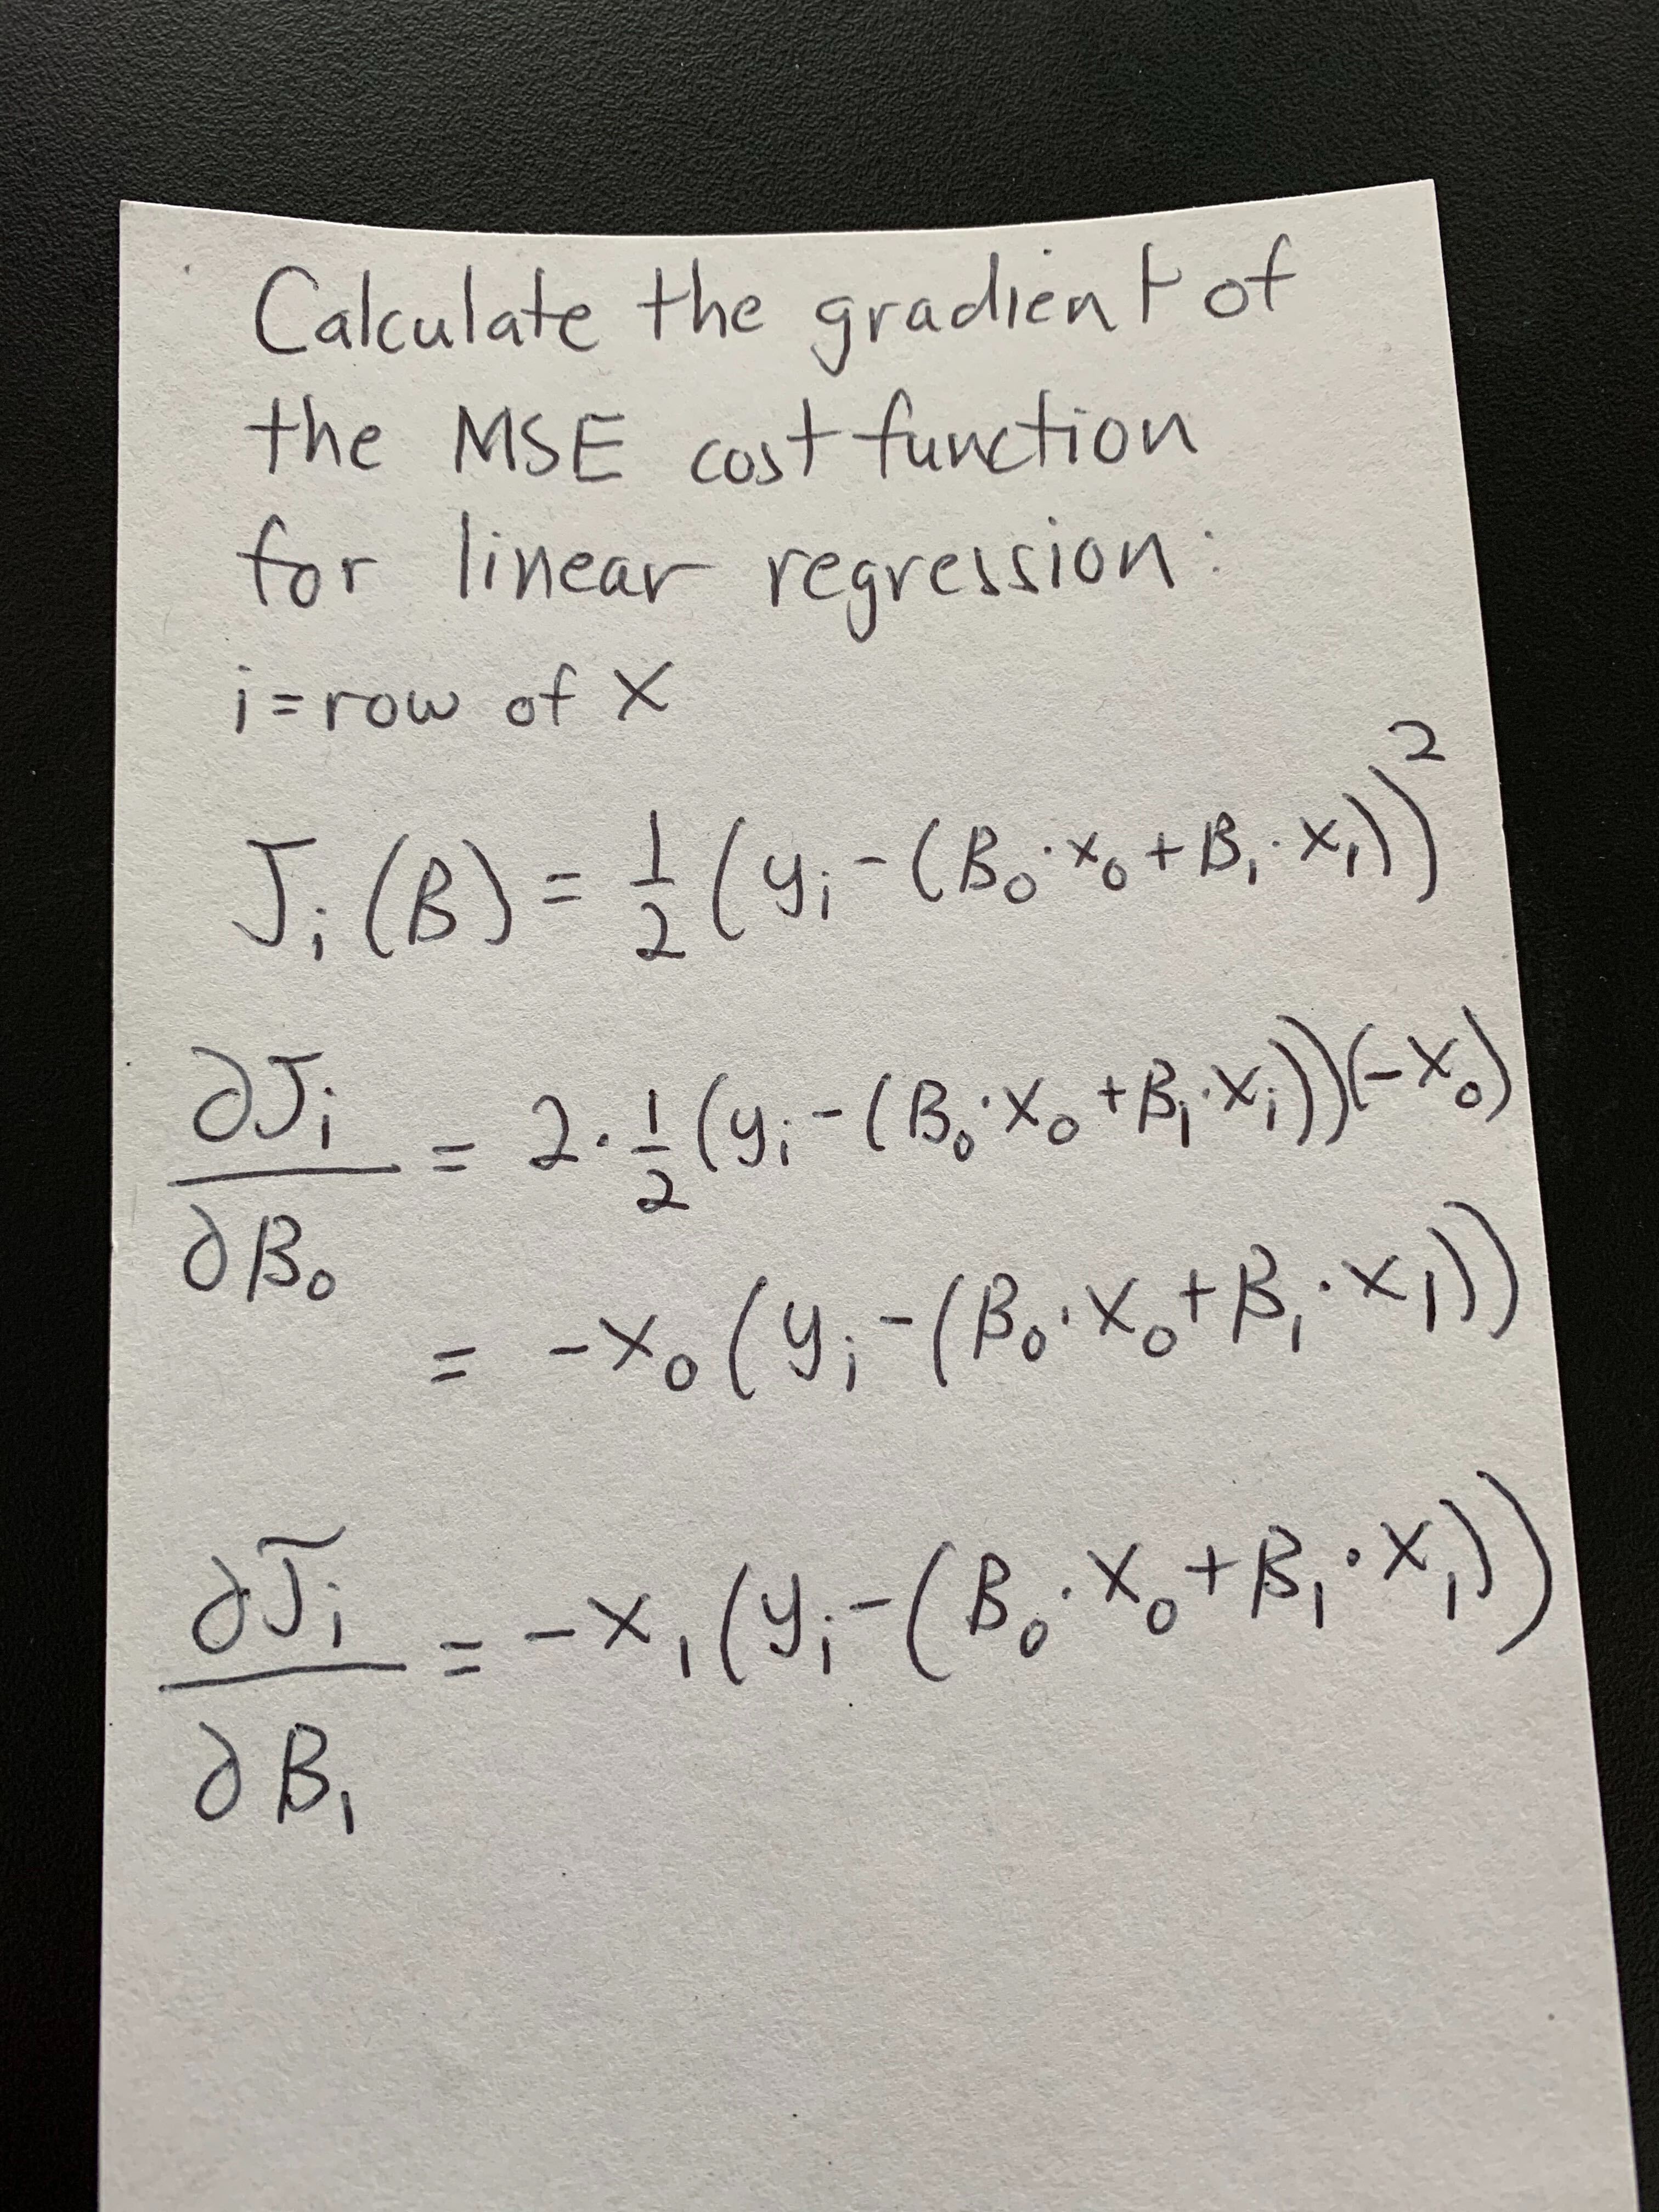 Calculate the gradient of
the MSE cost function
for linear regression:
i = row of X
J_i(B) = 1/2 (y_i - (B_0 · x_0 + B_1 · x_1))^2
∂J_i/∂B_0 = 2 · 1/2 (y_i - (B_0 · x_0 + B_1 · x_i))(-x_0)
= -x_0 (y_i - (B_0 · x_0 + B_1 · x_1))
∂J_i/∂B_1 = -x_1 (y_i - (B_0 · x_0 + B_1 · x_1))